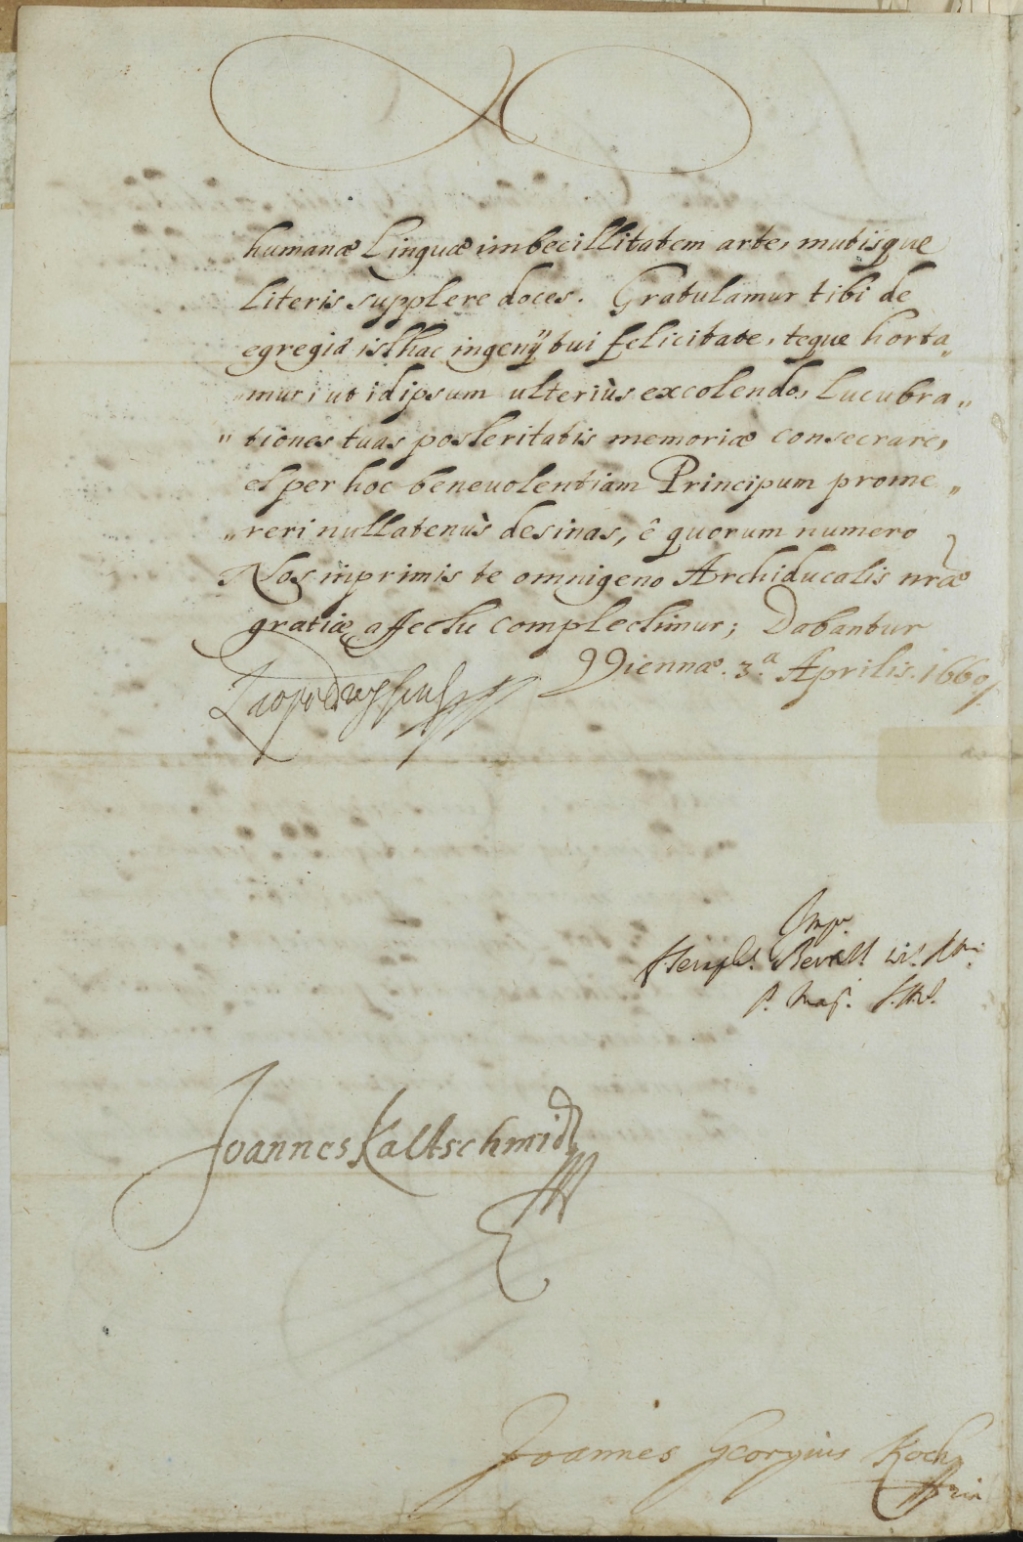 humanæ Linguæ imbecillitatem arte, mutisque
Literis supplere doces. Gratulamur tibi de
egregia isthac ingenÿ tui felicitate, teque horta„
„mur, ut idipsum ulteriùs excolendo, Lucubra„
„tiones tuas posteritatis memoriæ consecrare,
et per hoc beneuolentiam Principum prome„
„reri nullatenùs desinas, ê quorum numero
Nos inprimis te omnigeno Archiducalis nræ
gratiæ affectu complectimur; Dabantur
Viennæ. 3.ª Aprilis. 1660
Joannes Kaltschmidt
Joannes Georgius Koch